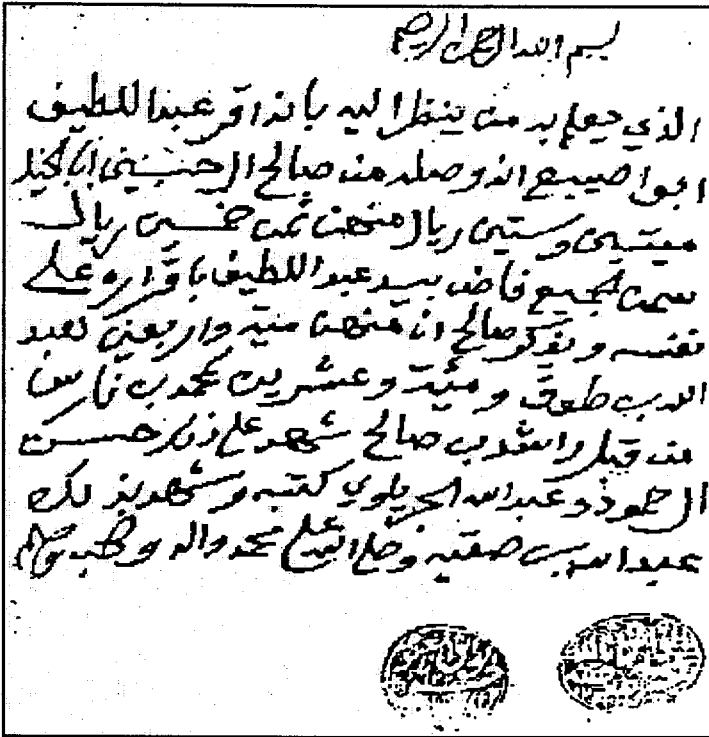 بسم الله الرحمن الرحيم
الذي يعلم به من ينظر اليه بانه اقر عبد اللطيف
ابوا صيبع انه وصله من صالح ال حنيني ابا الخيل
ميتين وستين ريال منهن ثمن خمسين ريال
سمن الجميع قاض بيد عبد اللطيف باقراره على
نفسه ويذكر صالح ان منهن مية واربعين لعبد
الله بن طوق ومئة وعشرين لمحمد بن فارس
من قبل راشد بن صالح شهد على ذلك حسن
ال حمود وعبد الله الجريلوي كتبه وشهد بذلك
عبد الله بن صقيه وصلى الله على محمد واله وصحبه وسلم